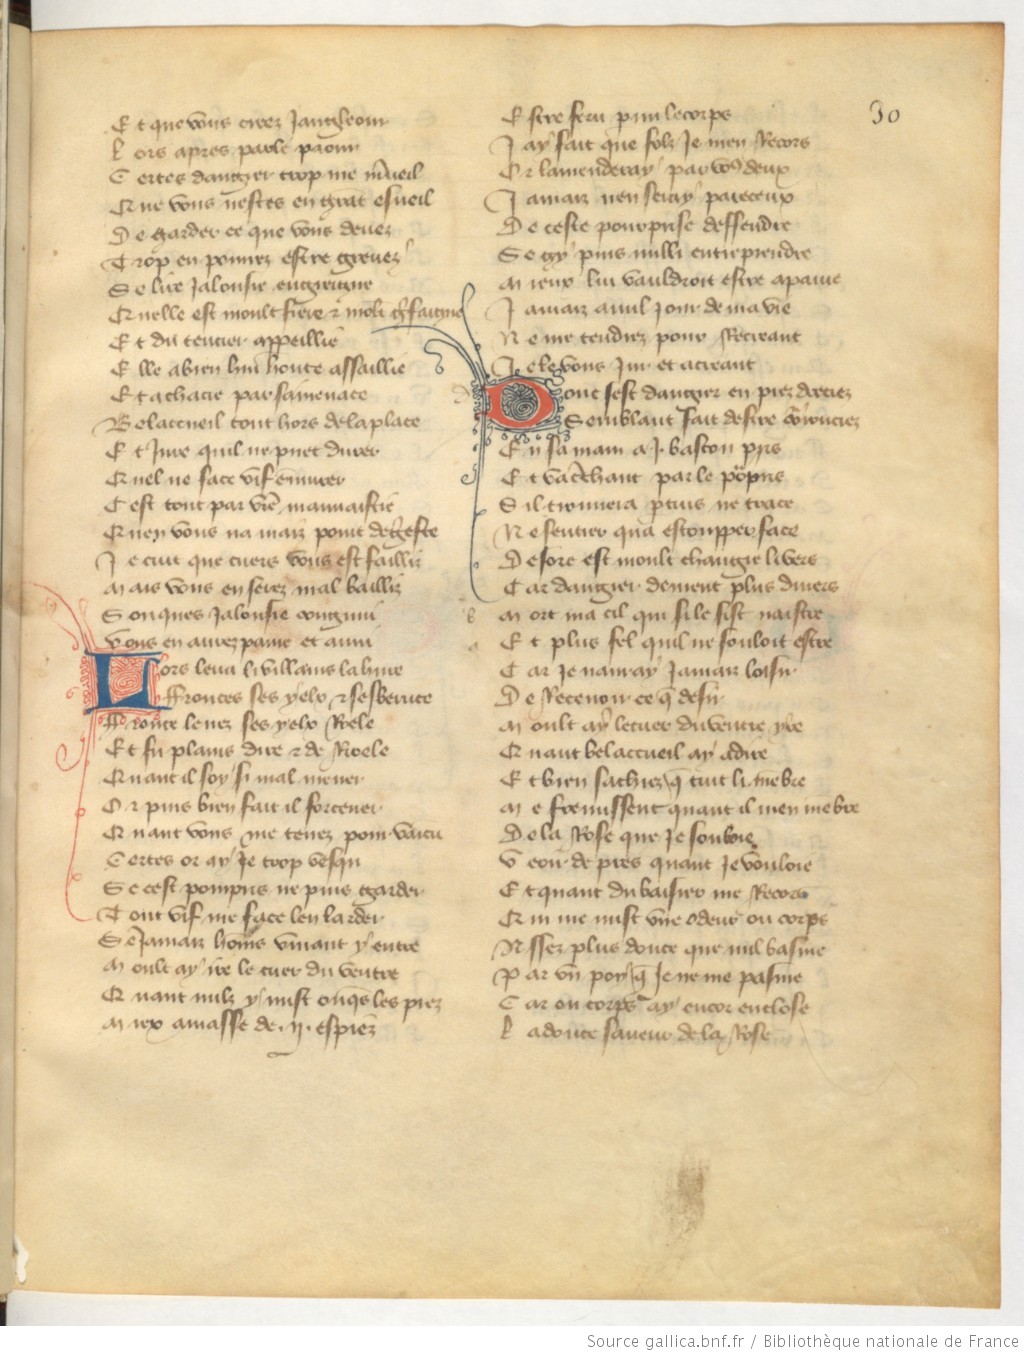 30
Et que vous oiez Jangleour
Lors apres parle paour
Certes dangier trop me m̃ueil
Qr ne vous nestes en grāt esueil
De garder ce que vous deuez
Trop en pourrez estre greuez
Se lire Jalousie engreigne
Qr uelle est moult fiere &
Et du tencier appeillie
Elle a bien hui honte assaillie
Et a chacie par sa menace
Belaccueil tout hors de la place
Et Jure quil ne puet durer
Qr uel ne face vif ēmurer
Cest tout par vr̄e mauuaistie
Qr uen vous na maiz point
Je cuit que cuers vous est failliz
Mais vous en serez mal bailliz
Sonques Jalousie congnui
Vous en aurez paine et anui
Lors leua li villains la hure
Fronces ses yelx & se
Fronce le nez ses yelx Röele
Et fu plains dire & de Roele
Quant il soy si mal mener
Or puis bien fait il forcener
Quant vous me tenez pour vaicu
Certes or ay Je trop vesqu
Se cest pourpris ne puis garder
Tout vif me face len larder
Se Jamaiz homs viuant y entre
Moult ay ire le cuer du ventre
Quant nulz y mist onqs les piez
Miex amasse de .ij. espiez
Estre feru p mi le corps
Jay fait que folz Je men Recors
Or lamenderay par vo9 deux
Jamaiz nen seray pareceux
De ceste pourprise deffendre
Se gy puis nulli entreprendre
Mieux lui vauldroit estre a pauie
Jamaiz a nul Jour de ma vie
Ne me tendrez pour Recreant
Je le vous Jur et acreant
Donc sest dangier en piez dreciez
Semblant fait destre courouciez
En sa main a .J. baston pris
Et va chant par le pourpris
Sil trouuera ptuis ne trace
Ne sentier qua estoupper face
Desore est moult changie li vers
Car dangier deuient plus diuers
Mort ma cil qui si le fist naistre
Et plus fel quil ne souloit estre
Car Je nauray Jamaiz loisir
De Receuoir ce q̄ desir
Moult ay le cuer du ventre yre
Quant belaccueil ay adire
Et bien sachiez q̄ tuit li mēbre
Me fremissent quant il men mēbre
De la Rose que Je souloie
Veoir de pres quant Je vouloie
Et quant du baisier me Recors
Qui me mist vne odeur ou corps
Assez plus douce que nul basme
Par vn poy q̄ Je ne me pasme
Car ou corps ay encor enclose
La douce saueur de la Rose
Source gallica.bnf.fr / Bibliothèque nationale de France